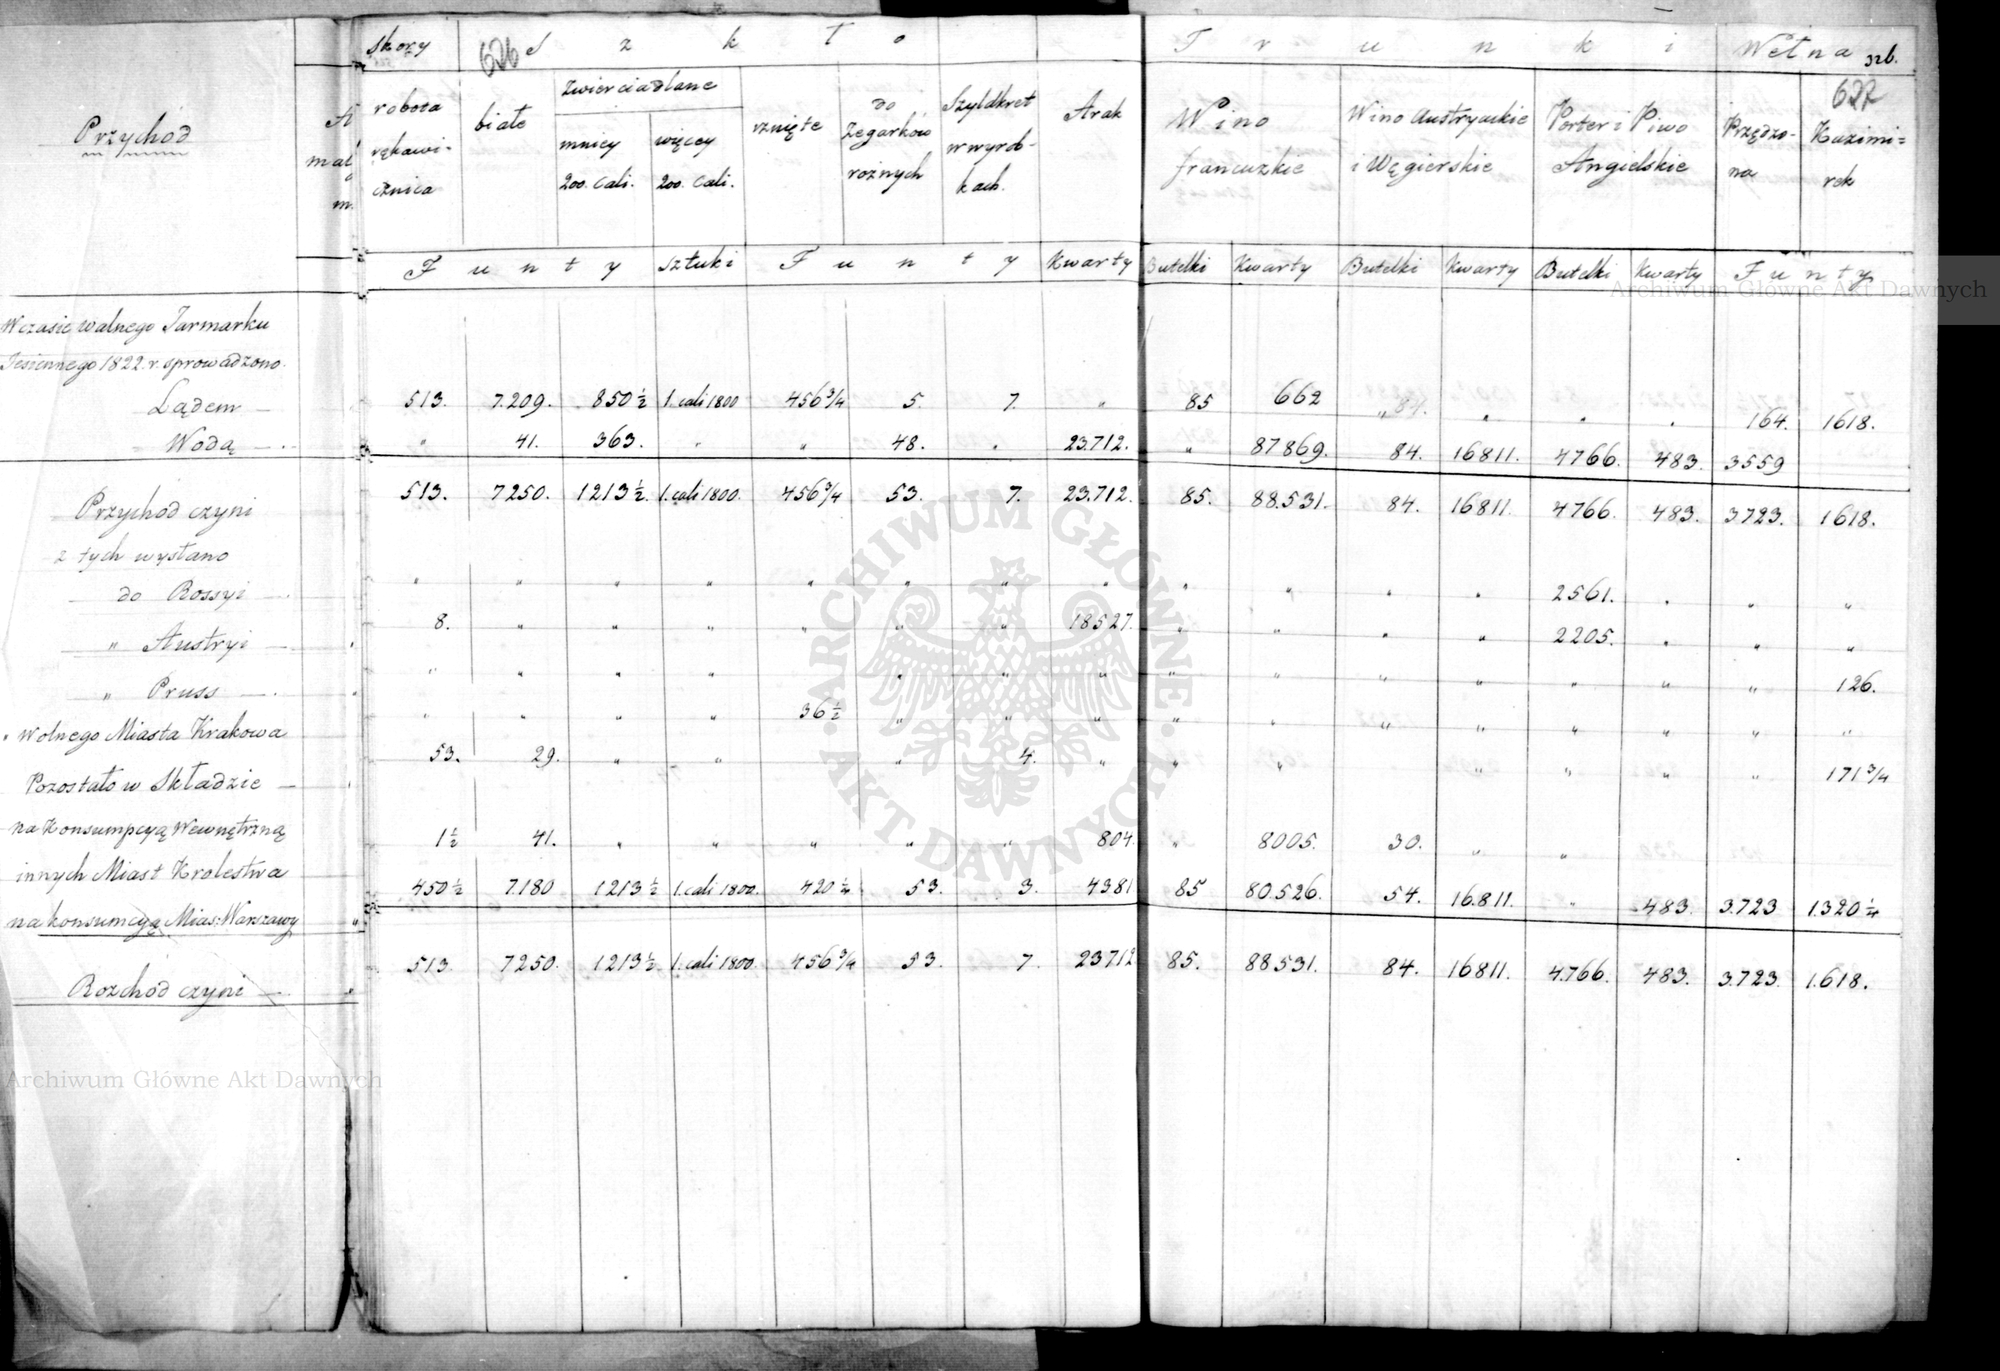 Skory 626 Szkło Trunki Wełna 326.
627
Przychód
robota rękawicznica białe Zwierciadlane mniey 200. Cali. więcey 200. Cali. rznięte do Zegarków rożnych Szyldkret w wyrobkach. Arak Wino francuzkie Wino Austryackie i Węgierskie Porter i Piwo Angielskie Przędzona Kazimirek
Funty Sztuki Funty Kwarty Butelki Kwarty Butelki Kwarty Butelki Kwarty Funty
W czasie walnego Jarmarku
Jesiennego 1822. r. sprowadzono.
Lądem — 513. 7.209. 850 1/2 1. cali 1800 456 3/4 5. 7. " 85 662 " 84. " " . 164. 1618.
Wodą — " 41. 363. " " 48. " 23.712. " 87869. 84. 16811. 4766. 483. 3559
Przychód czyni 513. 7250. 1213 1/2 1. cali 1800. 456 3/4 53. 7. 23.712. 85. 88.531. 84. 16811. 4766. 483. 3.723. 1618.
z tych wysłano
do Rossyi — " " " " " " " " " " " " 2561. " " "
" Austryi — 8. " " " " " " 18527. " " " " 2205. " " "
" Pruss — " " " " " " " " " " " " " " 126.
" Wolnego Miasta Krakowa " " " " 36 1/2 " " " " " " " " " " "
Pozostało w Składzie — 53. 29. " " " 4. " " " " " " " " 171 3/4
na Konsumpcyą Wewnętrzną
innych Miast Krolestwa 1 1/2 41. " " " " " 804. " 8005. 30. " "
na konsumcyą Mias: Warszawy 450 1/2 7.180 1213 1/2 1. cali 1800. 420 1/4 53. 3. 4381 85 80.526. 54. 16.811. " 483 3.723 1.320 1/4
Rozchód czyni — 513 7250. 1213 1/2 1. cali 1800. 456 3/4 53. 7. 23712 85. 88.531. 84. 16811. 4.766. 483. 3.723. 1.618.
Archiwum Główne Akt Dawnych
Archiwum Główne Akt Dawnych
ARCHIWUM GŁÓWNE AKT DAWNYCH